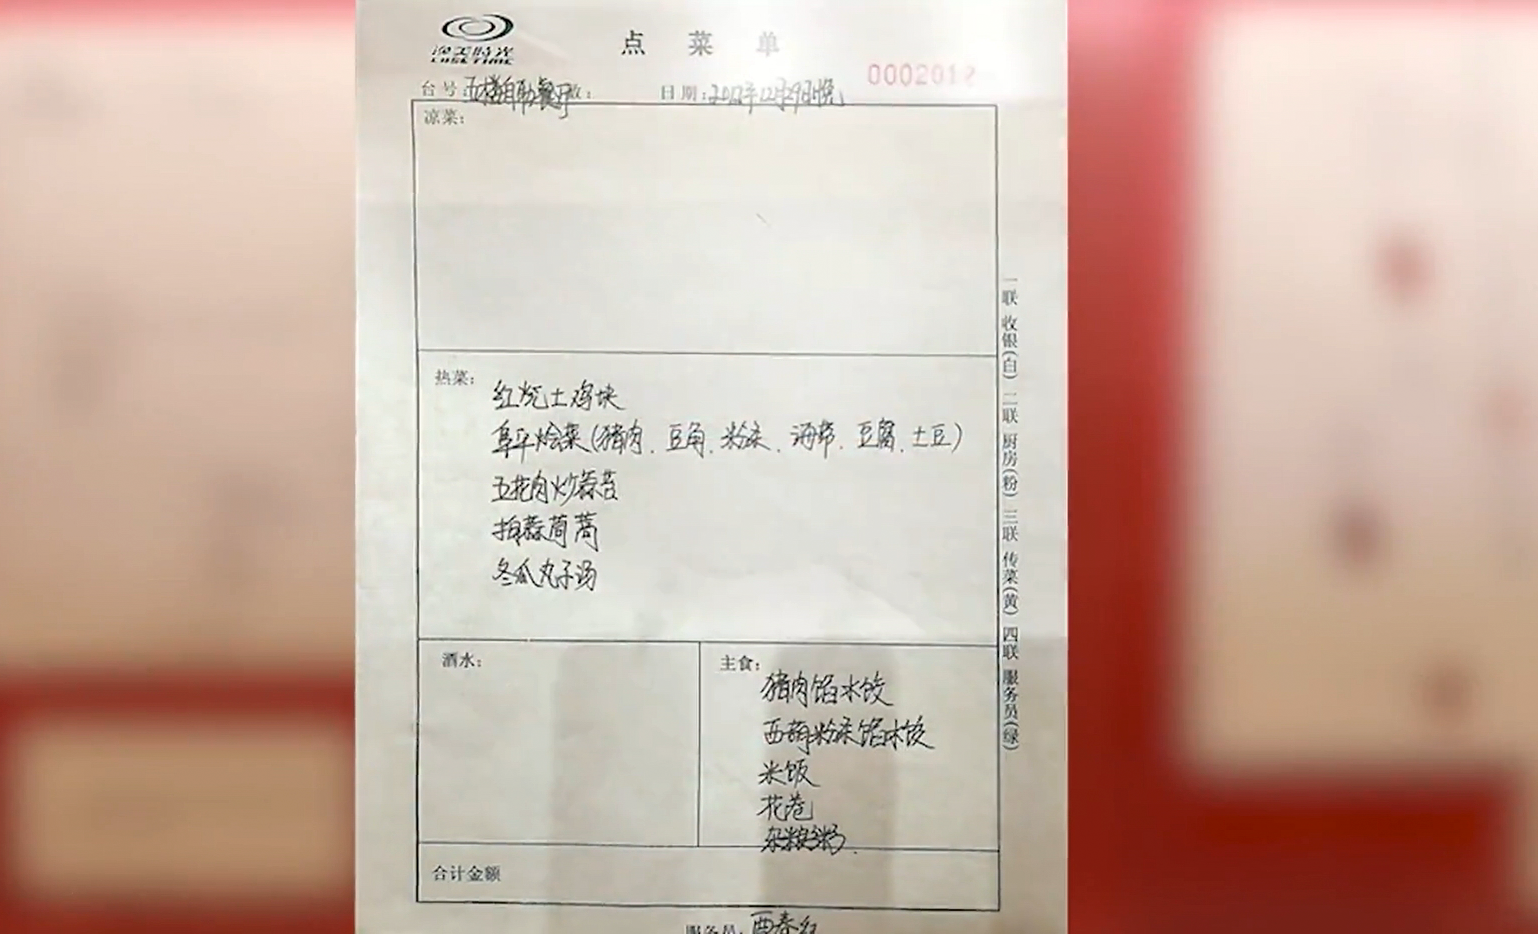 渔美時光
点菜单
0002012
台号:五楼自助餐厅
日期:2012年12月29日晚
凉菜:
热菜:
红烧土鸡块
阜平烩菜(猪肉、豆角、粉条、海带、豆腐、土豆)
五花肉炒蒜苔
拍蒜茼蒿
冬瓜丸子汤
酒水:
主食:
猪肉馅水饺
西葫粉条馅水饺
米饭
花卷
杂粮粥
合计金额
服务员:
一联 收银(白) 二联 厨房(粉) 三联 传菜(黄) 四联 服务员(绿)